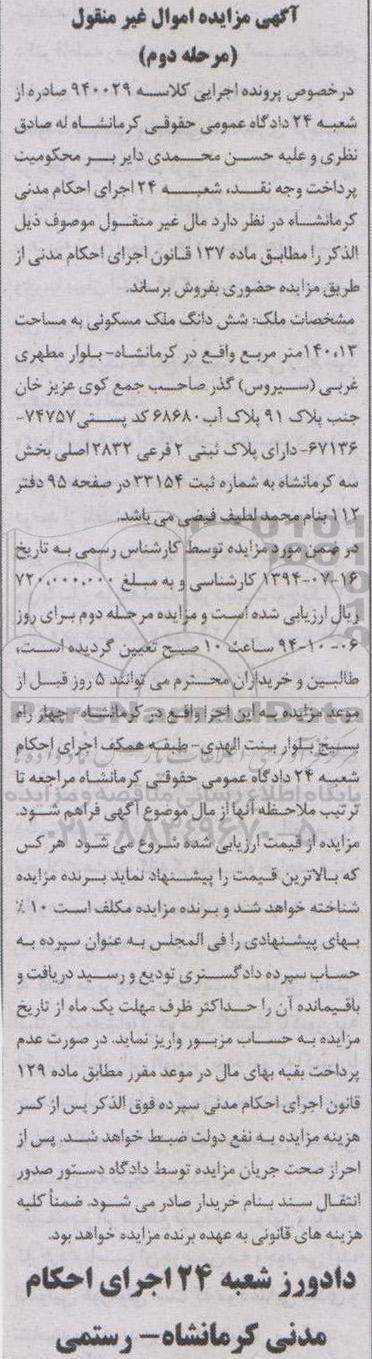 آگهی مزایده اموال غیر منقول
(مرحله دوم)
درخصوص پرونده اجرایی کلاسه ۹۴۰۰۲۹ صادره از
شعبه ۲۴ دادگاه عمومی حقوقی کرمانشاه له صادق
نظری و علیه حسن محمدی دایر بر محکومیت
پرداخت وجه نقد، شعبه ۲۴ اجرای احکام مدنی
کرمانشاه در نظر دارد مال غیر منقول موصوف ذیل
الذکر را مطابق ماده ۱۳۷ قانون اجرای احکام مدنی از
طریق مزایده حضوری بفروش برساند.
مشخصات ملک: شش دانگ ملک مسکونی به مساحت
۱۴۰،۱۳متر مربع واقع در کرمانشاه- بلوار مطهری
غربی (سیروس) گذر صاحب جمع کوی عزیز خان
جنب پلاک ۹۱ پلاک آب ۶۸۶۸۰ کد پستی ۷۴۷۵۷-
۶۷۱۳۶- دارای پلاک ثبتی ۲ فرعی ۲۸۳۲ اصلی بخش
سه کرمانشاه به شماره ثبت ۳۳۱۵۴ در صفحه ۹۵ دفتر
۱۱۲ بنام محمد لطیف فیضی می باشد.
در ضمن مورد مزایده توسط کارشناس رسمی به تاریخ
۱۶-۰۷-۱۳۹۴ کارشناسی و به مبلغ ۷۲۰،۰۰۰،۰۰۰
ریال ارزیابی شده است و مزایده مرحله دوم برای روز
۰۶-۱۰-۹۴ ساعت ۱۰ صبح تعیین گردیده است،
طالبین و خریداران محترم می توانند ۵ روز قبل از
موعد مزایده به این اجرا واقع در کرمانشاه - چهار راه
بسیج بلوار بنت الهدی- طبقه همکف اجرای احکام
شعبه ۲۴ دادگاه عمومی حقوقی کرمانشاه مراجعه تا
ترتیب ملاحظه آنها از مال موضوع آگهی فراهم شود.
مزایده از قیمت ارزیابی شده شروع می شود هر کس
که بالاترین قیمت را پیشنهاد نماید برنده مزایده
شناخته خواهد شد و برنده مزایده مکلف است ۱۰٪
بهای پیشنهادی را فی المجلس به عنوان سپرده به
حساب سپرده دادگستری تودیع و رسید دریافت و
باقیمانده آن را حداکثر ظرف مهلت یک ماه از تاریخ
مزایده به حساب مزبور واریز نماید. در صورت عدم
پرداخت بقیه بهای مال در موعد مقرر مطابق ماده ۱۲۹
قانون اجرای احکام مدنی سپرده فوق الذکر پس از کسر
هزینه مزایده به نفع دولت ضبط خواهد شد. پس از
احراز صحت جریان مزایده توسط دادگاه دستور صدور
انتقال سند بنام خریدار صادر می شود. ضمناً کلیه
هزینه های قانونی به عهده برنده مزایده خواهد بود.
دادورز شعبه ۲۴ اجرای احکام
مدنی کرمانشاه- رستمی